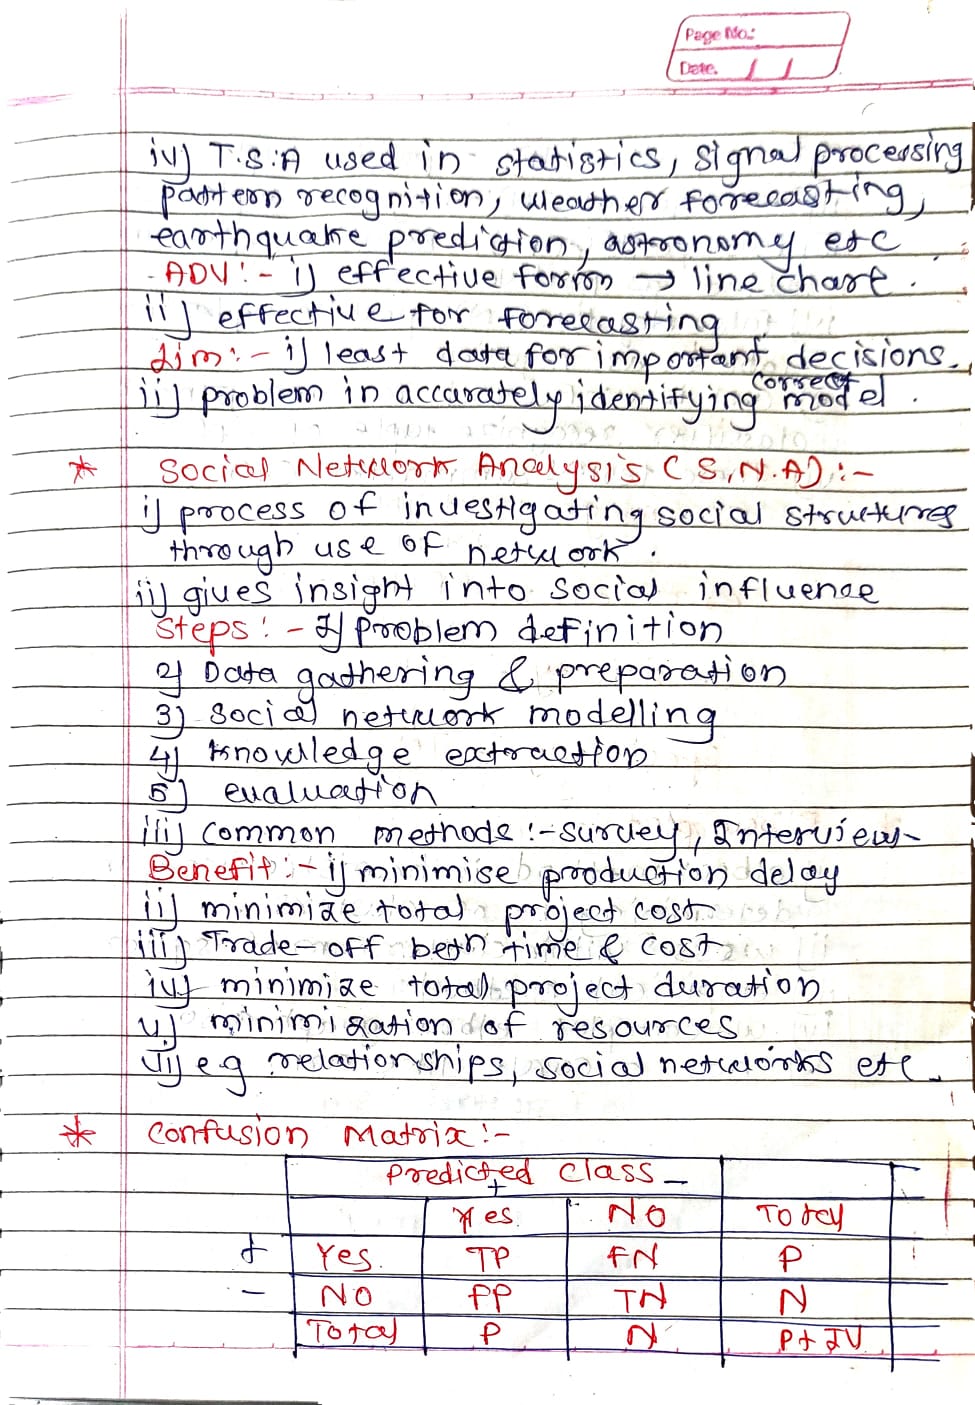 Page No.:
Date. / /
iv) T.S.A used in statistics, signal processing
pattern recognition, weather forecasting,
earthquake prediction, astronomy etc
ADV:- i) effective form → line chart.
ii) effective for forecasting
Lim:- i) least data for important decisions.
correct
ii) problem in accurately identifying model.
* Social Network Analysis (S.N.A):-
i) process of investigating social structures
through use of network.
ii) gives insight into social influence
Steps:- 1) problem definition
2) Data gathering & preparation
3) Social network modelling
4) Knowledge extraction
5) evaluation
iii) common methods:- survey, Interview
Benefit:- i) minimise production delay
ii) minimize total project cost
iii) Trade-off betn time & cost
iv) minimize total project duration
v) minimization of resources
vi) e.g relationships, social networks etc.
* Confusion Matrix:-
Predicted class
+ -
Yes NO Total
+ Yes. TP FN P
- NO FP TN N
Total P N P+N